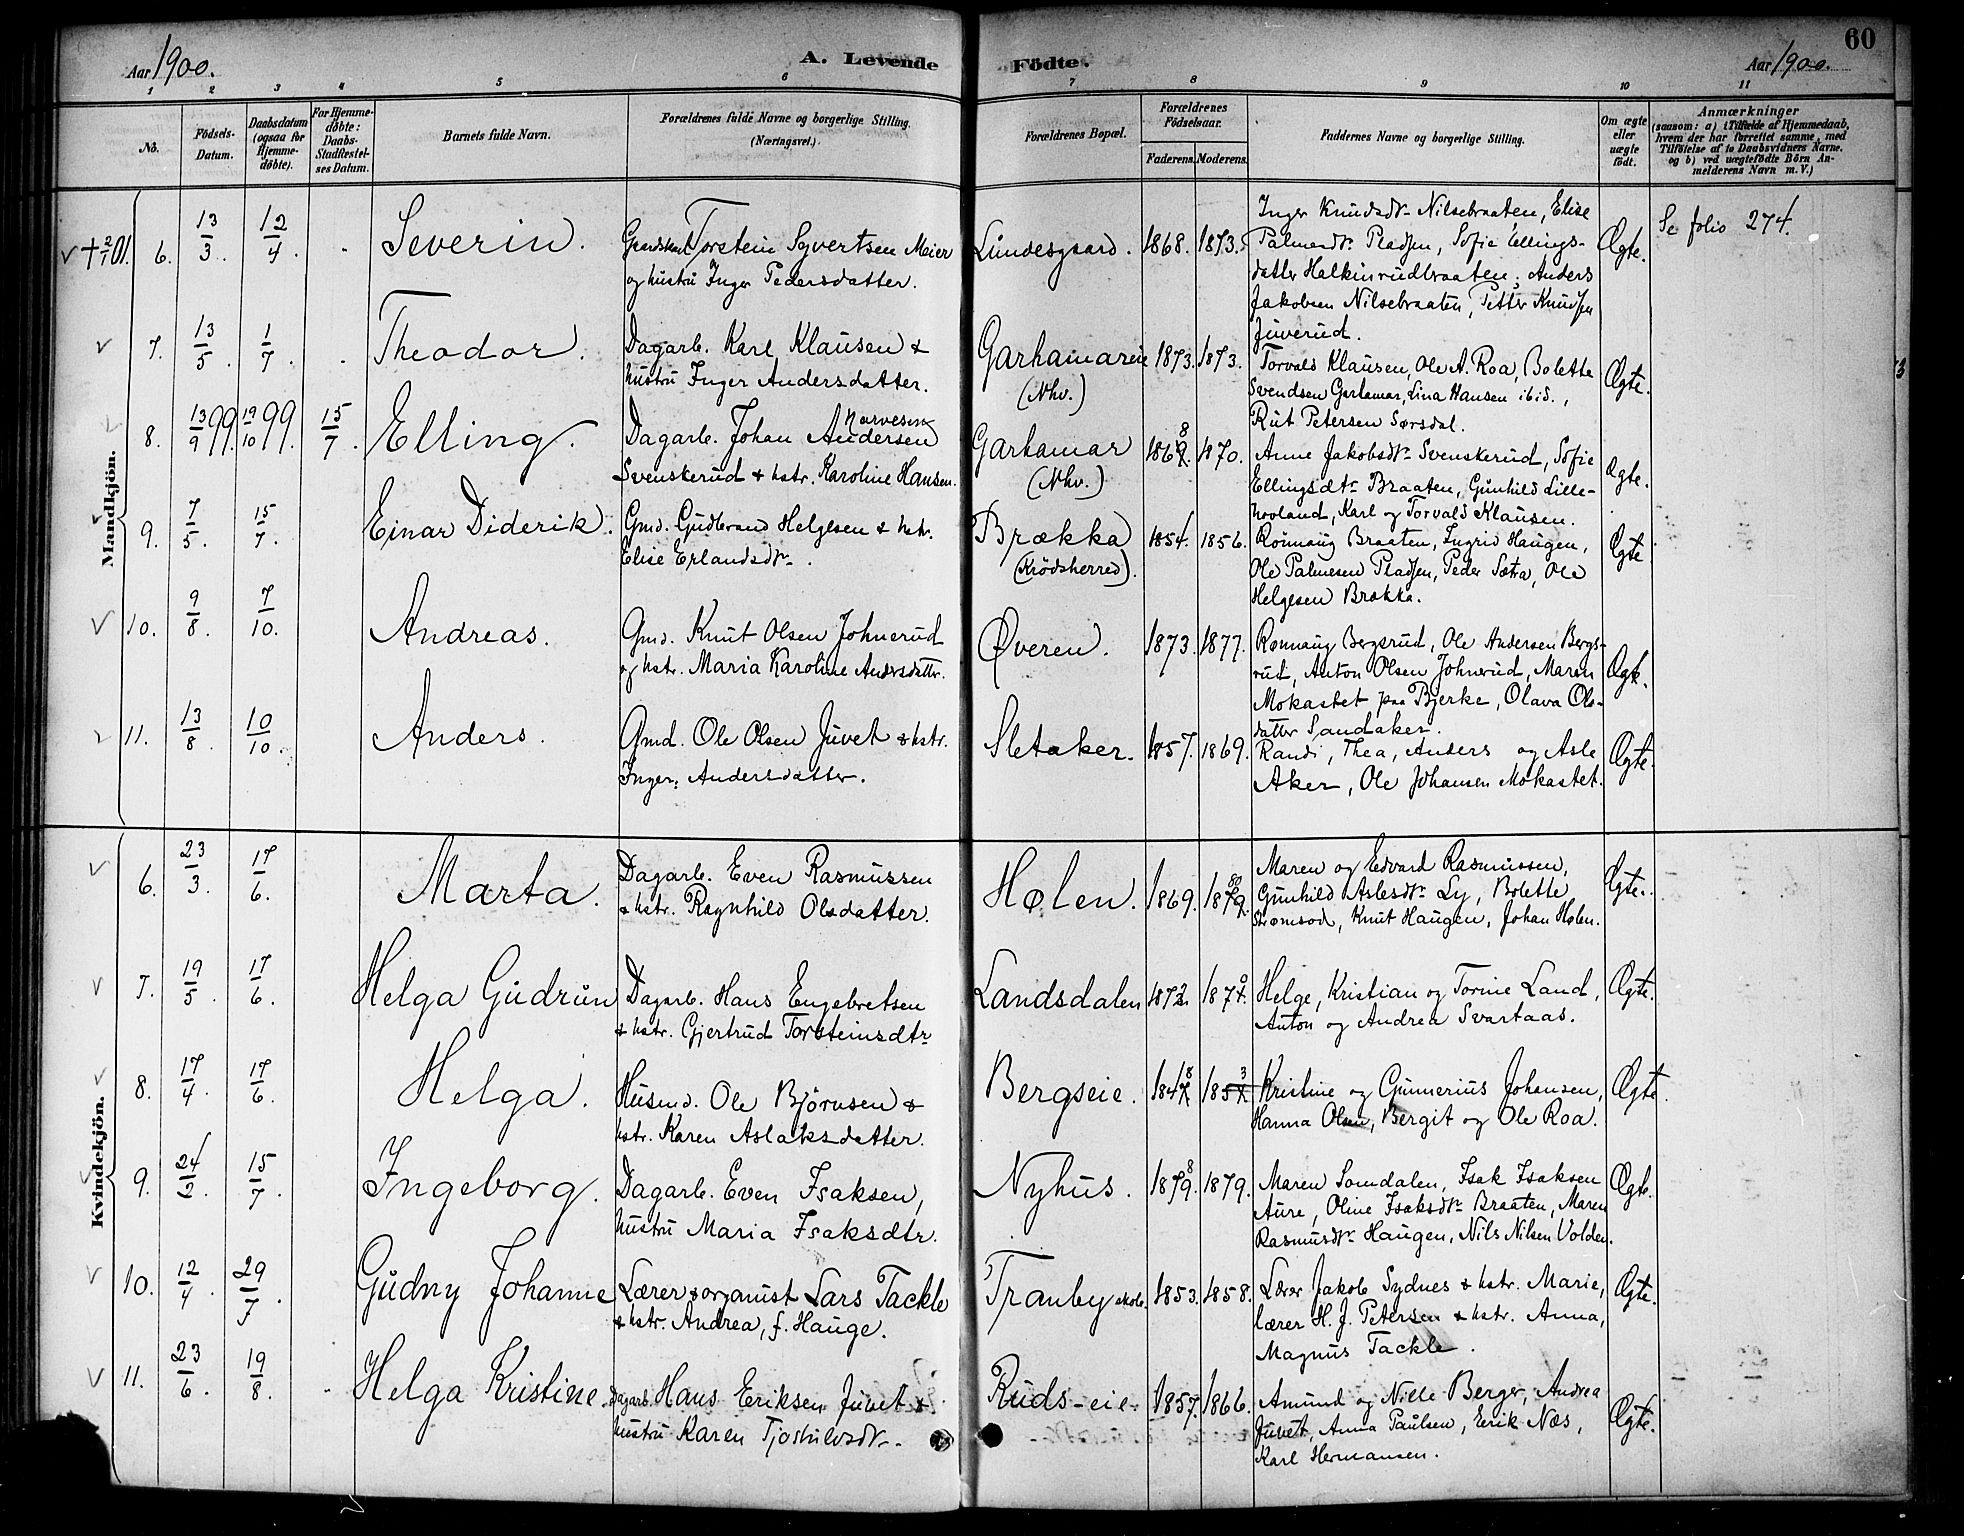 60
Aar 1900.
A. Levende Födte.
Aar 1900.
1 2 3 4 5 6 7 8 9 10 11
No.
Födsels-Datum.
Daabsdatum (ogsaa for Hjemmedöbte).
For Hjemmedöbte: Daabs-Stadfestelses Datum.
Barnets fulde Navn.
Forældrenes fulde Navne og borgerlige Stilling. (Næringsvei.)
Forældrenes Bopæl.
Forældrenes Födselsaar.
Faderens. Moderens.
Faddernes Navne og borgerlige Stilling.
Om ægte eller uægte födt.
Anmærkninger
(saasom: a) i Tilfælde af Hjemmedaab,
hvem der har forrettet samme, med
Tilföielse af to Daabsvidners Navne,
og b) ved uægtefödte Börn An-
melderens Navn m. V.)
Mandkjön.
6. 13/3. 12/4. Severin.
Torstein Syvertsen Meier
og hustru Inger Pedersdatter.
Lundesgaard. 1868. 1873.
Inger Knudsdtr Nilsebraaten, Elise
Palmesdtr Pladsen, Sofie Ellings-
datter Halkinrudbraaten, Anders
Jakobsen Nilsebraaten, Petter Knudsen
Juverud.
Ægte.
Se folio 274.
7. 13/5. 1/7. Theodor.
Dagarb. Karl Klausen &
hustru Inger Andersdatter.
Garhamareie (Nhv.) 1873. 1873.
Torvald Klausen, Ole A. Roa, Bolette
Svendsen Garhamar, Lina Hansen ibid.,
Rut Petersen Sørsdal.
Ægte.
8. 13/9 99. 19/10 99. 15/7. Elling.
Narvesen
Dagarb. Johan Andersen
Svenskerud & hstr. Karoline Hansen.
Garhamar (Nhv.) 1868. 1870.
Anne Jakobsdtr Svenskerud, Sofie
Ellingsdtr Braaten, Gunhild Lille-
hovland, Karl og Torvald Klausen.
Ægte.
9. 7/5. 15/7. Einar Diderik.
Gmd. Gudbrand Helgesen & hstr.
Elise Erlandsdtr.
Brækka (Krödsherred). 1854. 1856.
Rönnaug Braaten, Ingrid Haugen,
Ole Palmesen Pladsen, Peder Sætra, Ole
Helgesen Brækka.
Ægte
10. 9/8. 7/10. Andreas.
Gmd. Knut Olsen Johnrud
og hstr. Maria Karoline Andersdatter.
Øveren. 1873. 1877.
Rønnaug Bergsrud, Ole Andersen Bergs-
rud, Anton Olsen Johnrud, Maren
Mokastet paa Bjerke, Olava Ols-
datter Sandaker.
Ægte.
11. 13/8. 10/10. Anders.
Gmd. Ole Olsen Juvet & hstr.
Inger Andersdatter.
Sletaker. 1857. 1869.
Randi, Thea, Anders og Asle
Aker, Ole Johansen Mokastet.
Ægte.
Kvindekjön.
6. 23/3. 17/6. Marta.
Dagarb. Even Rasmussen
& hstr. Ragnhild Olsdatter.
Hølen. 1869. 1880
Maren og Edvard Rasmussen,
Gunhild Aslesdtr Ly, Bolette
Strømsod, Knut Haugen, Johan Hølen.
Ægte.
7. 19/5. 17/6. Helga Gudrun
Dagarb. Hans Engebretsen
& hstr. Gjertrud Torsteinsdtr
Landsdalen 1872. 1870.
Helge, Kristian og Torine Land,
Anton og Andrea Svartaas.
Ægte.
8. 17/4. 17/6. Helga.
Husmd. Ole Björnsen &
hstr. Karen Aslaksdatter.
Bergseie. 1848 1853
Kristine og Gunnerius Johansen,
Hanna Olsen, Bergit og Ole Roa.
Ægte.
9. 24/2. 15/7. Ingeborg.
Dagarb. Even Isaksen,
hustru Maria Isaksdtr.
Nyhus. 1878. 1879.
Maren Somdalen, Isak Isaksen
Aure, Oline Isaksdtr Braaten, Maren
Rasmusdtr Haugen, Nils Nilsen Volden.
Ægte.
10. 12/4. 29/7. Gudny Johanne
Lærer & organist Lars Tackle
& hstr. Andrea, f. Hauge.
Tranby skole. 1853. 1858.
Lærer Jakob Sydnes & hstr. Marie,
lærer H. J. Petersen & hstr. Anna,
Magnus Tackle.
Ægte.
11. 23/6. 19/8. Helga Kristine.
Dagarb. Hans Eriksen Juvet &
hustru Karen Tjostulvsdtr.
Ruds-eie. 1857. 1866.
Amund og Nille Berger, Andrea
Juvet, Anna Paulsen, Eerik Næs,
Karl Hermansen.
Ægte.